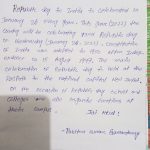 Republic day in India is celebrated on
January 26 every year. This year (2022) the
country will be celebrating your Republic day
on Wednesday (January 26, 2022). Constitution
of India was adopted in 1950 after India
on 15 August 1947. The main
celebration of Republic day is held at the
Rajpath in the national capital New Delhi.
On the occasion of Republic day school and
colleges are also organise functions at
their campus.
Jai Hind!